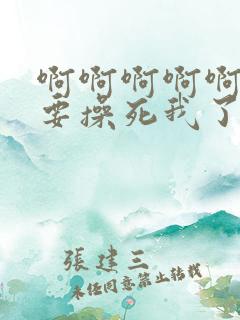 啊啊啊啊啊
要操死我了
張建三
未经同意禁止转载